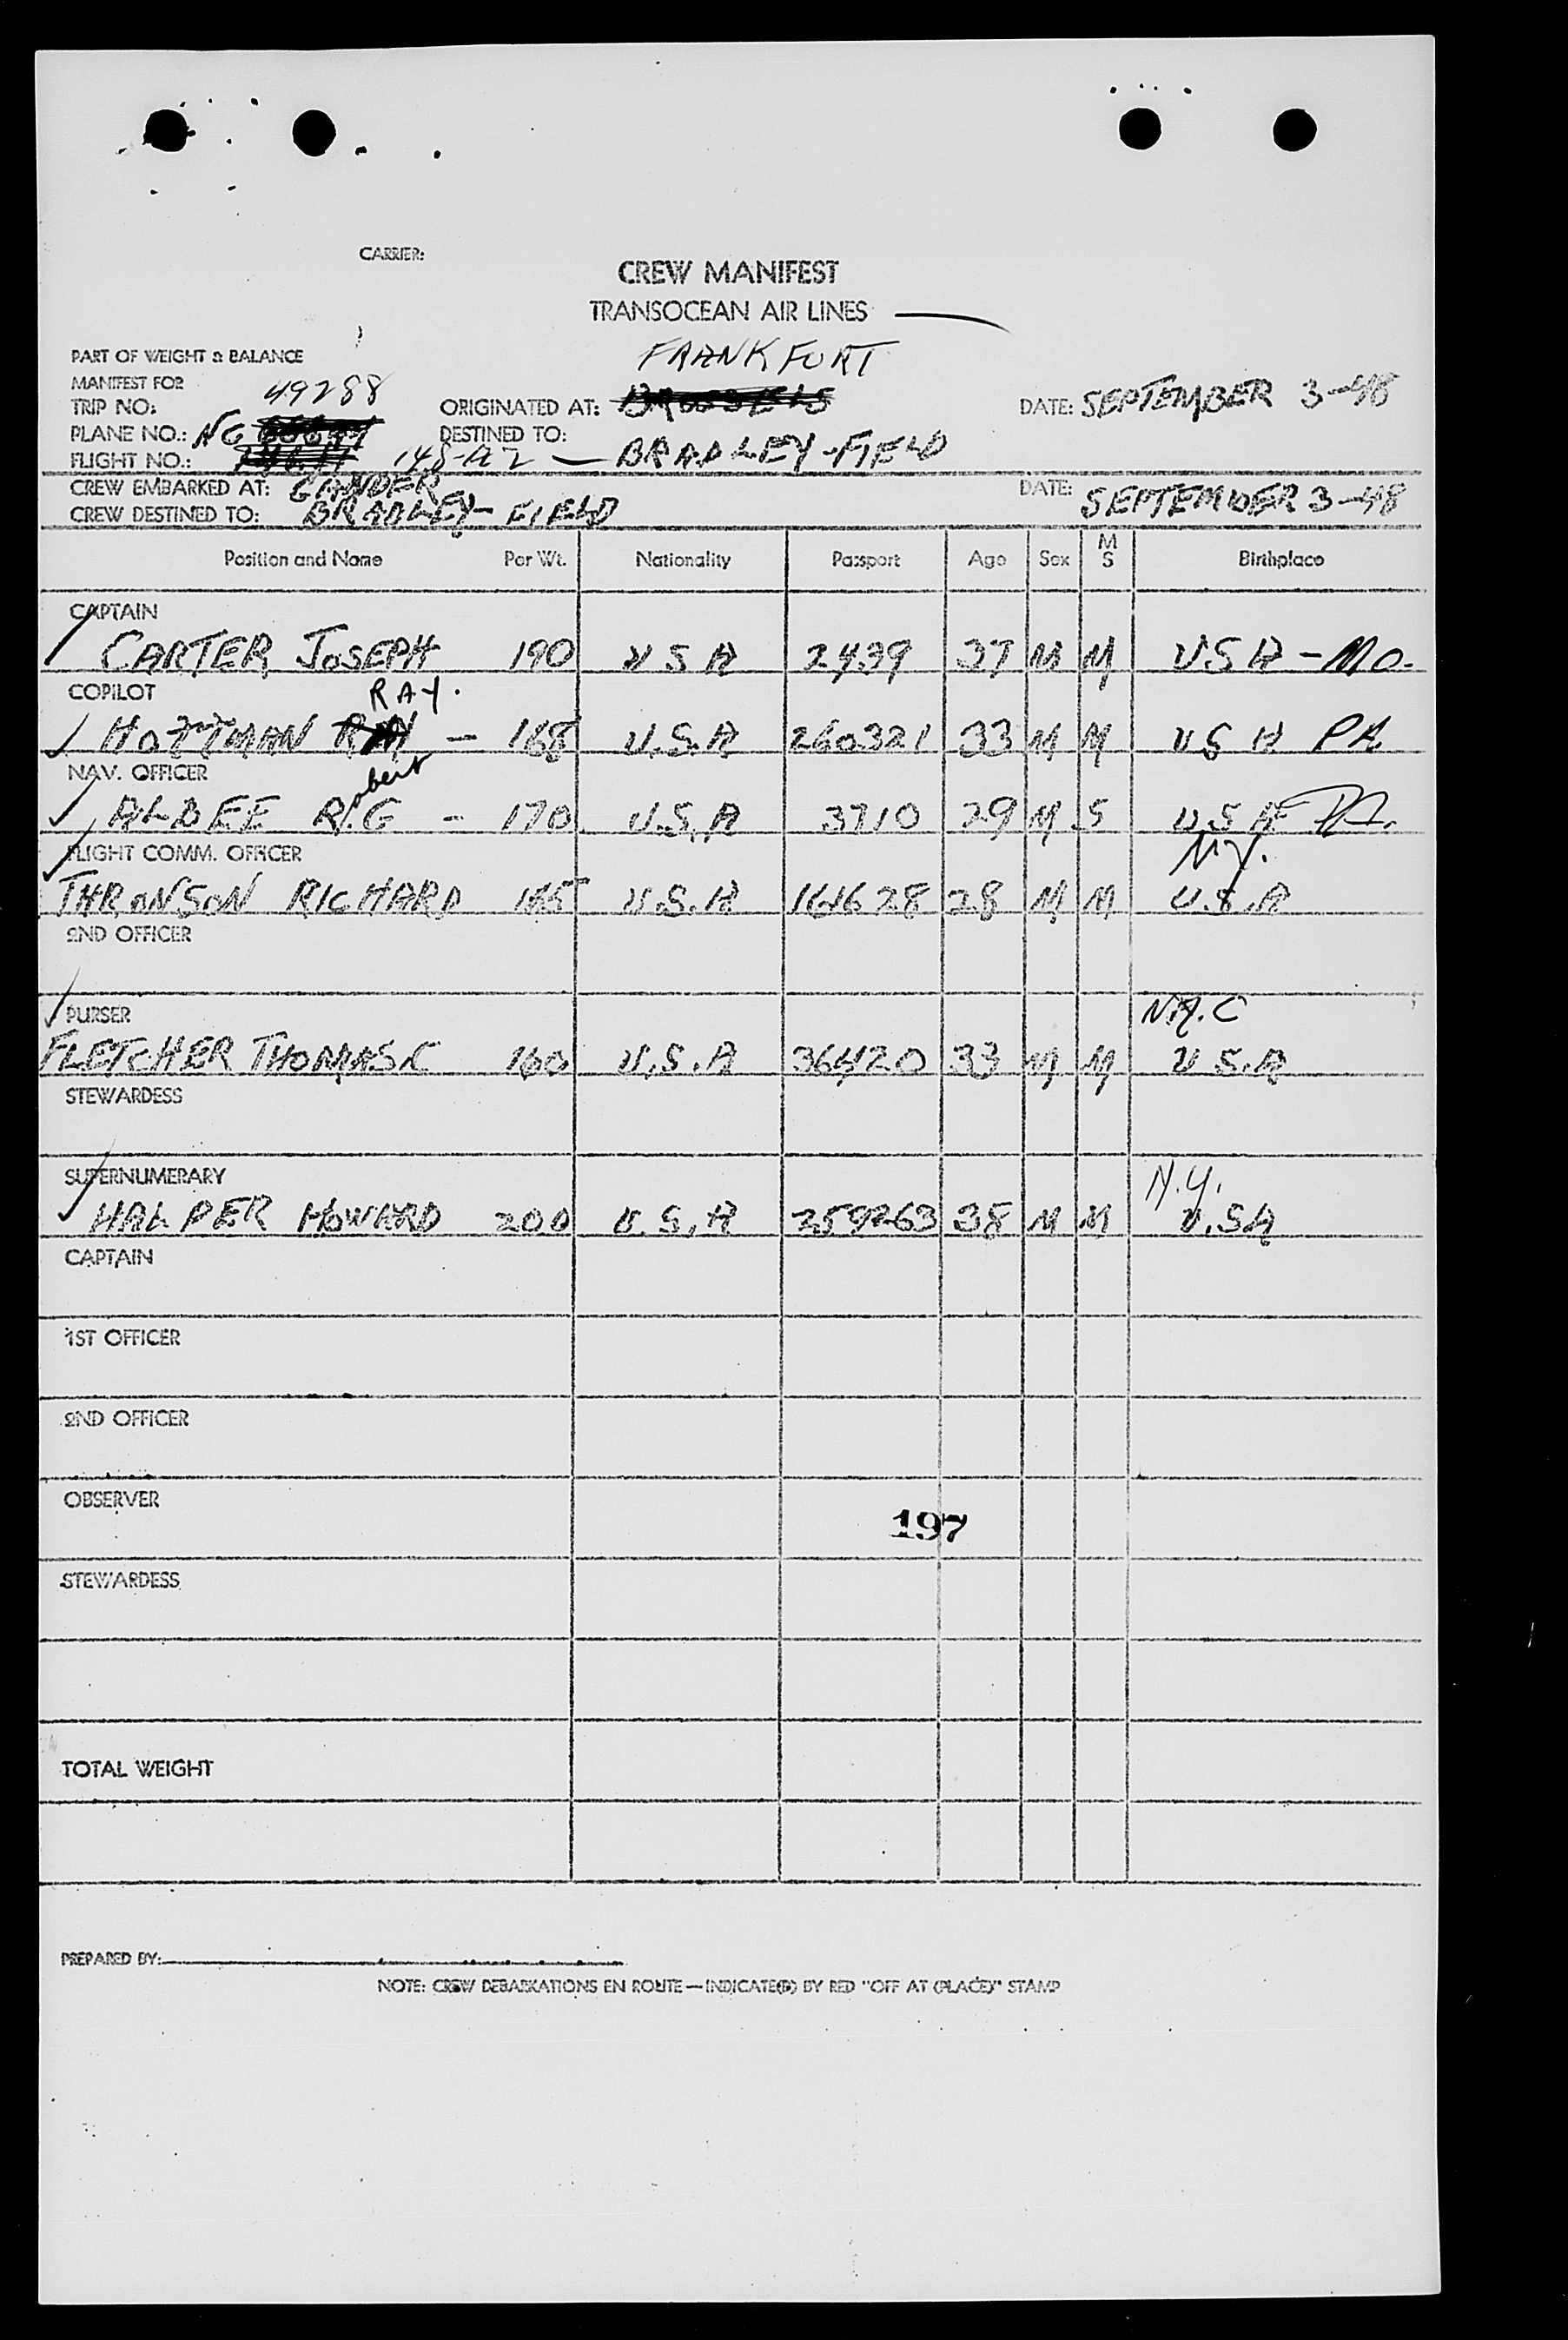 CARRIER:
CREW MANIFEST
TRANSOCEAN AIR LINES
PART OF WEIGHT & BALANCE
MANIFEST FOR
TRIP NO: 49288
FRANKFURT
ORIGINATED AT: BRUSSELS
DATE: SEPTEMBER 3-48
PLANE NO.: NC
DESTINED TO: BRADLEY-FIELD
FLIGHT NO.: 148-A2
CREW EMBARKED AT: GANDER
DATE: SEPTEMBER 3-48
CREW DESTINED TO: BRADLEY-FIELD
Position and Name Per Wt. Nationality Passport Age Sex M S Birthplace
CAPTAIN
CARTER JOSEPH 190 USA 2439 37 M M USA-MO.
COPILOT RAY.
HOFFMAN - 168 U.S.A 260321 33 M M USA PA
NAV. OFFICER obert
ALBEE R.G - 170 U.S.A 3710 29 M S U.S.A Pa.
FLIGHT COMM. OFFICER N.Y.
THRONSON RICHARD U.S.A 161628 28 M M U.S.A
2ND OFFICER
PURSER N.Y.C
FLETCHER THOMAS.C 160 U.S.A 36420 33 M M U.S.A
STEWARDESS
SUPERNUMERARY N.Y.
HALPER HOWARD 200 U.S.A 259263 38 M M U.SA
CAPTAIN
1ST OFFICER
2ND OFFICER
OBSERVER
197
STEWARDESS
TOTAL WEIGHT
PREPARED BY:
NOTE: CREW DEBARKATIONS EN ROUTE—INDICATE(D) BY RED "OFF AT (PLACE)" STAMP